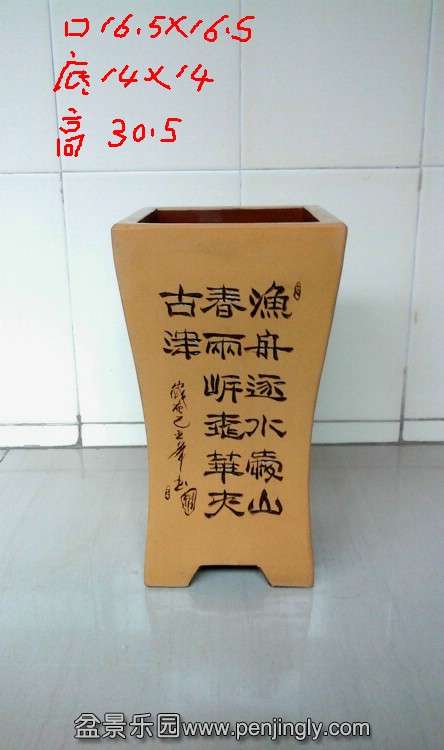 口16.5×16.5
底14×14
高 30.5
漁舟逐水愛山
春兩岸桃華夾
古津
盆景乐园www.penjingly.com